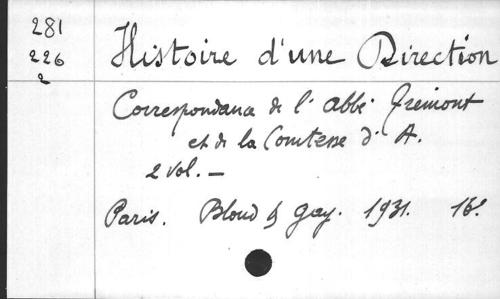 281
226
2
Histoire d'une Direction
Correspondance de l'abbé Frémont
et de la Comtesse d'A.
2 vol. —
Paris. Bloud & Gay. 1931. 16º